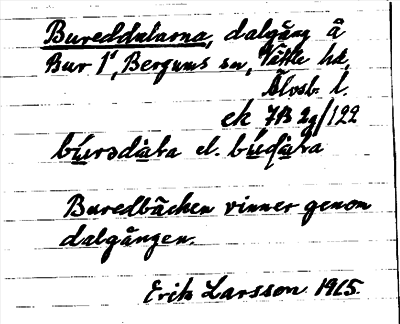 Bureddalarna, dalgång å
Bur 1¹, Bergums sn, Vättle hd,
Älvsb. l.
ek 7B 2g/122
el.
Buredbäcken rinner genom
dalgången.
Erik Larsson 1965.